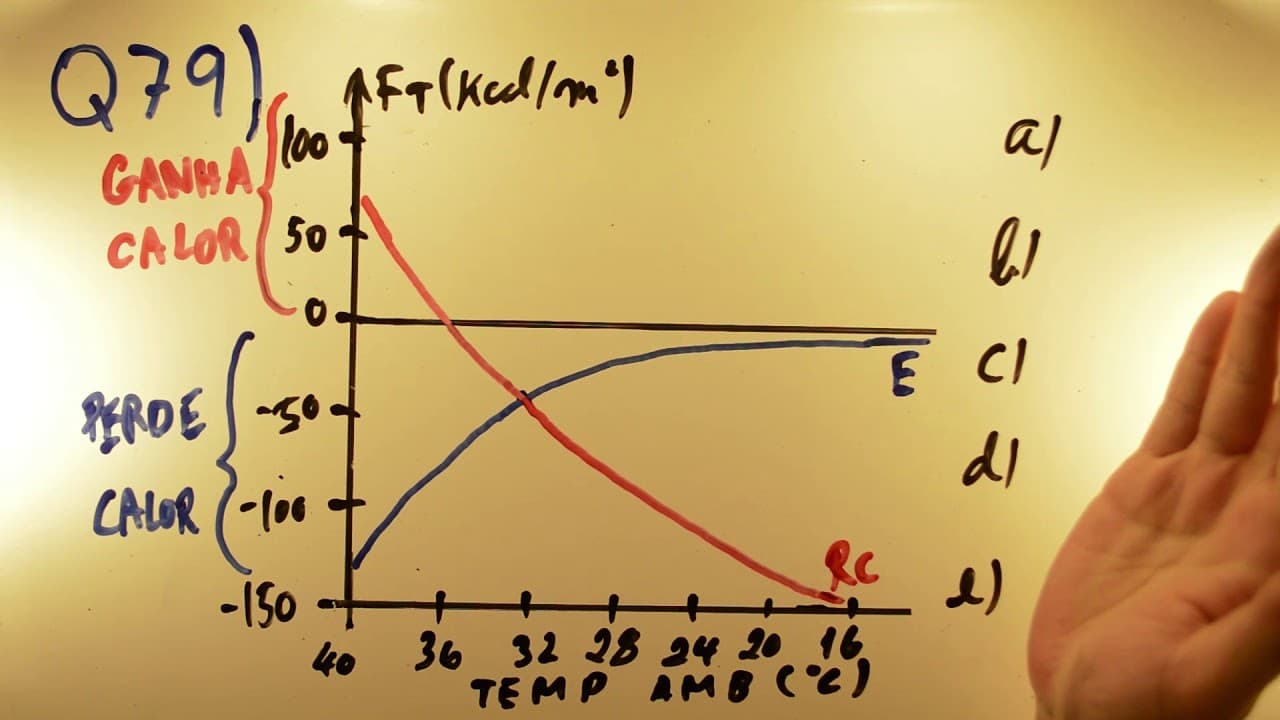 Q79)
FT(Kcal/m²)
GANHA
CALOR
100
50
0
-50
-100
-150
PERDE
CALOR
E
RC
40 36 32 28 24 20 16
TEMP AMB (°C)
a)
b)
c)
d)
e)